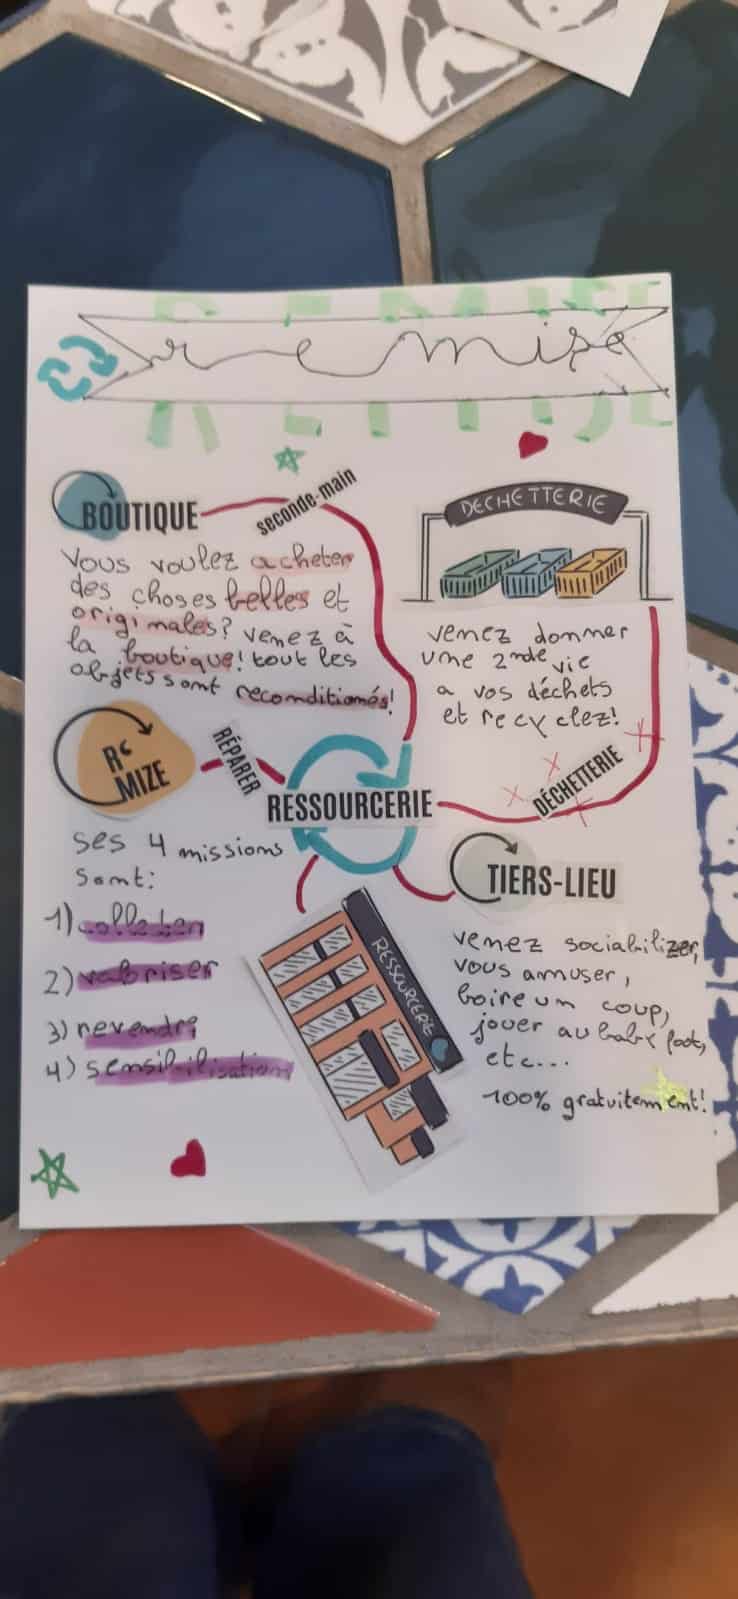 REMISE
remise
BOUTIQUE
seconde-main
Vous voulez acheter
des choses belles et
originales? venez à
la boutique! tout les
objets sont reconditionnés!
DECHETTERIE
venez donner
une 2nde vie
a vos déchets
et recyclez!
DÉCHETTERIE
Rc
MIZE
RÉPARER
RESSOURCERIE
ses 4 missions
sont:
1)
2) valoriser
3) revendre
4) sensibilisation
RESSOURCERIE
TIERS-LIEU
venez sociabilizer,
vous amuser,
boire un coup,
jouer au baby foot,
etc...
100% gratuitement!